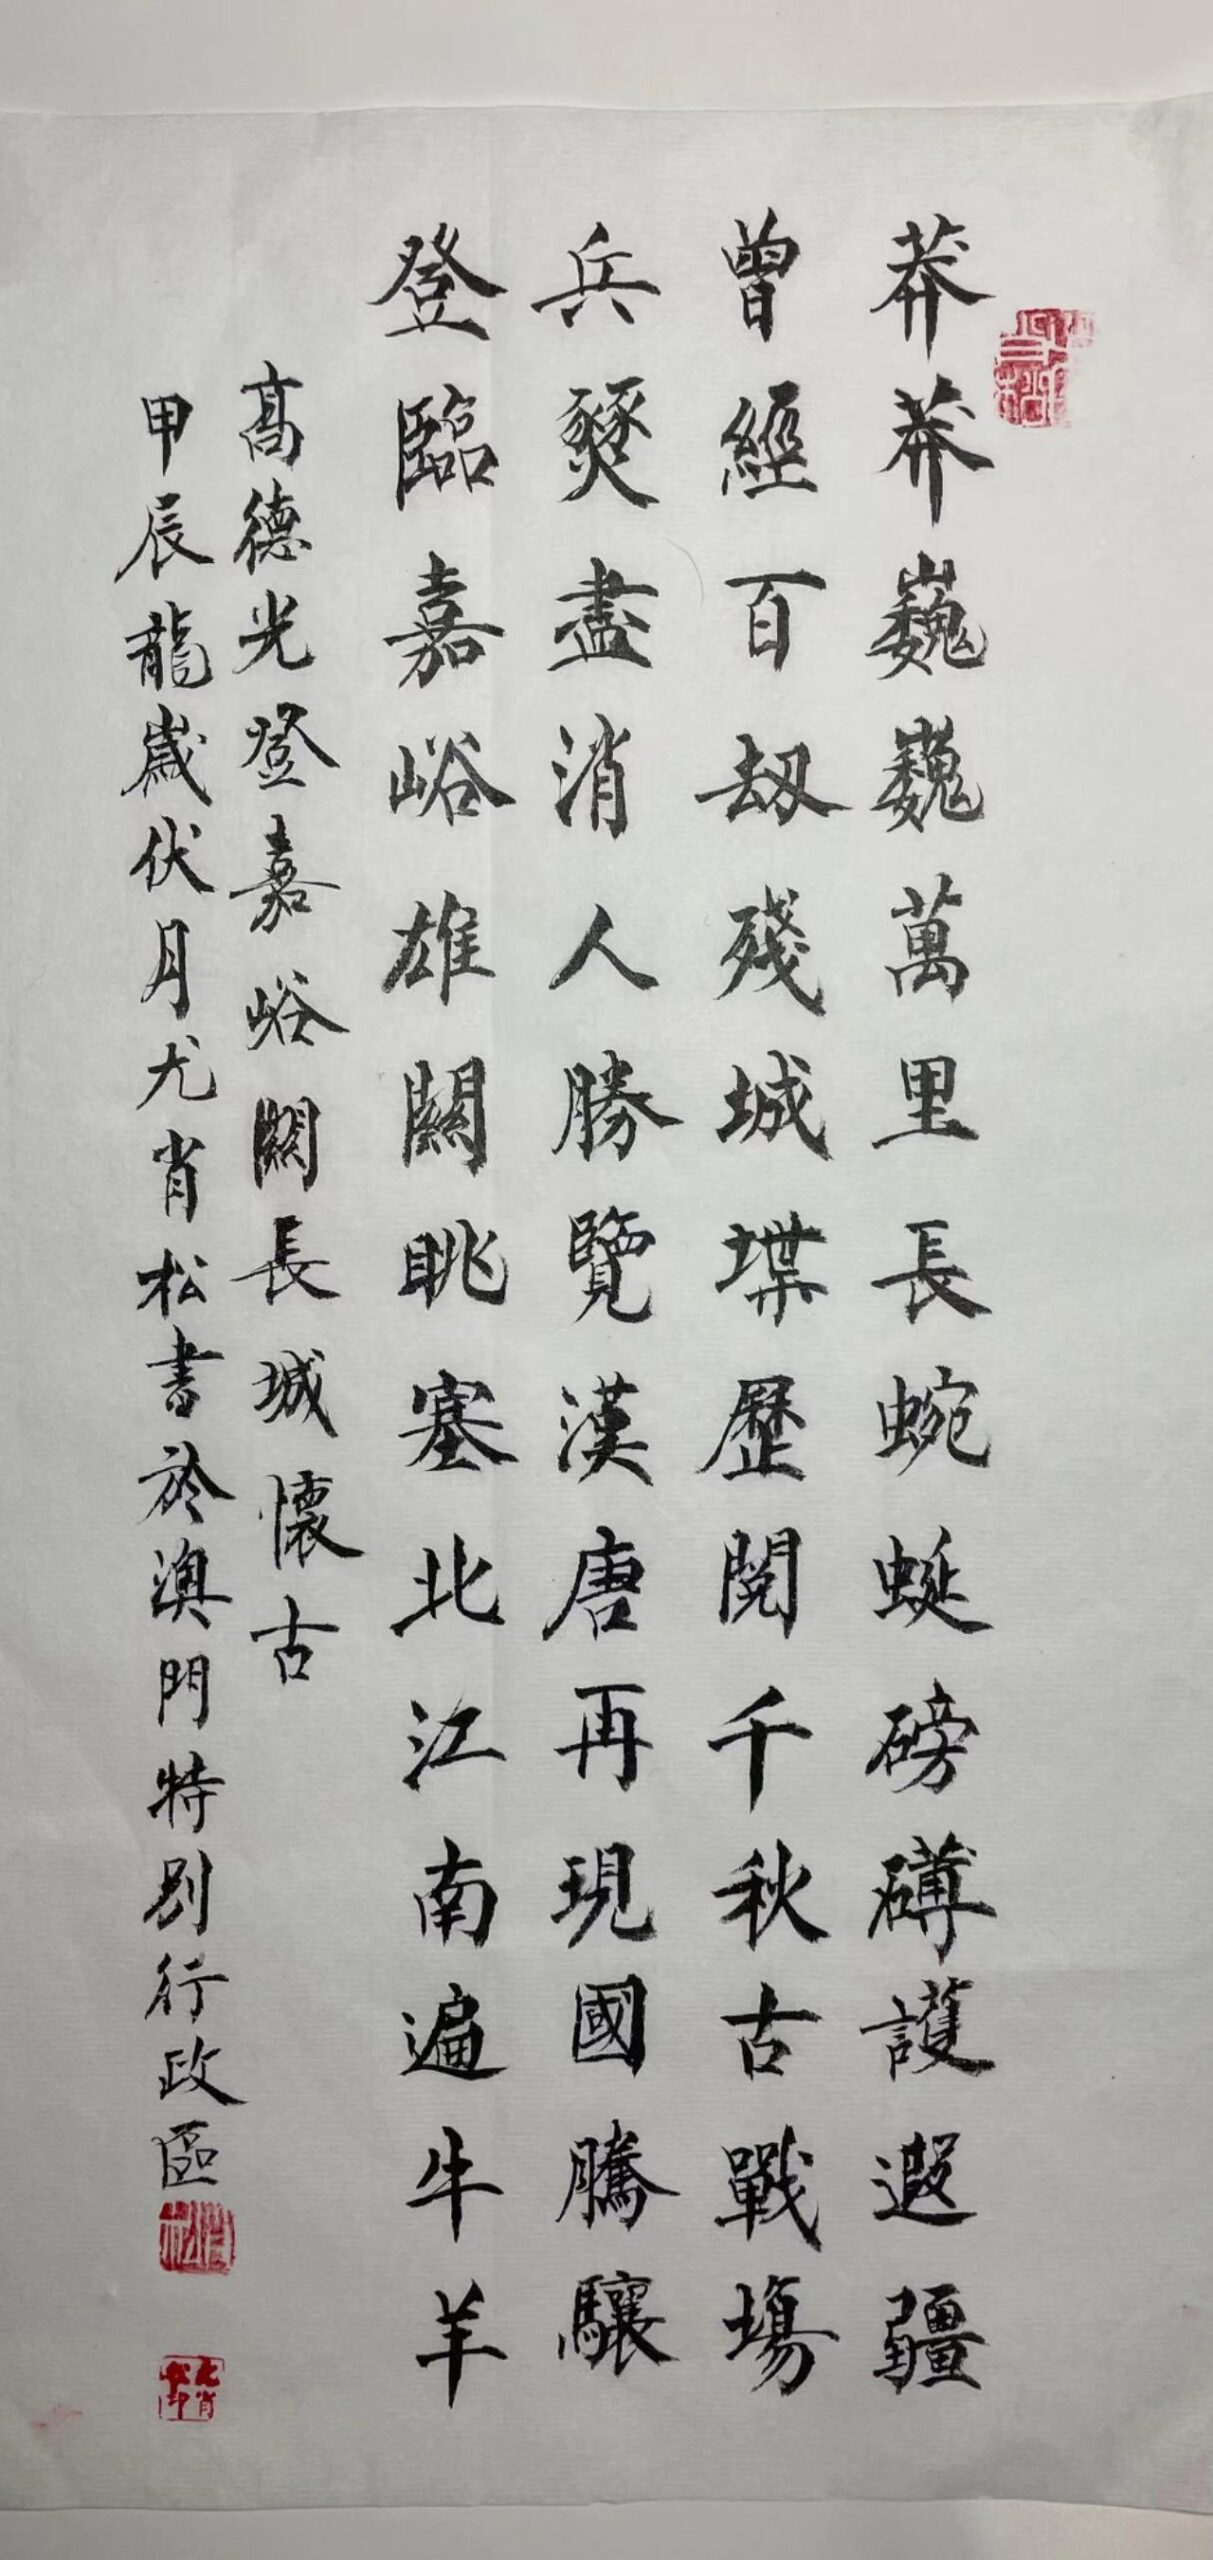 莽莽巍巍萬里長蜿蜒磅礴護遐疆
曾經百劫殘城堞歷閱千秋古戰場
兵燹盡消人勝覽漢唐再現國騰驤
登臨嘉峪雄關眺塞北江南遍牛羊
高德光登嘉峪關長城懷古
甲辰龍歲伏月尤肖松書於澳門特別行政區